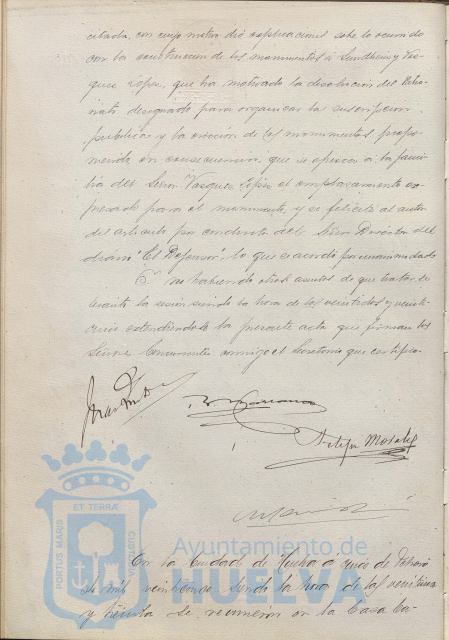 citada, con cuyo motivo dió explicaciones sobre lo ocurrido
con la construccion de los monumentos á Sundheim y Váz-
quez López, que ha motivado la disolución del Patro-
nato designado para organizar la suscripcion
publica y la ereccion de los monumentos, propo-
niendo en consecuencia que se ofrezca á la fami-
lia del Señor Vazquez López el emplazamiento ex-
presado para el monumento, y se felicite al autor
del articulo por conducto del Señor Director del
diario "El Defensor", lo que se acordó por unanimidad
Y no habiendo otros asuntos de que tratar se
levantó la sesion siendo la hora de las veintidos y veinti-
extendiéndose la presente acta que firman los
Señores Concurrentes conmigo el Secretario que certifico.
Felipe Morales
ET TERRA
PORTUS MARIS
CUSTODIA
Ayuntamiento de
HUELVA
En la Ciudad de Huelva a seis de Febrero
de mil veintiuno siendo la hora de las veintiuna
y treinta se reunieron en la Casa Ca-